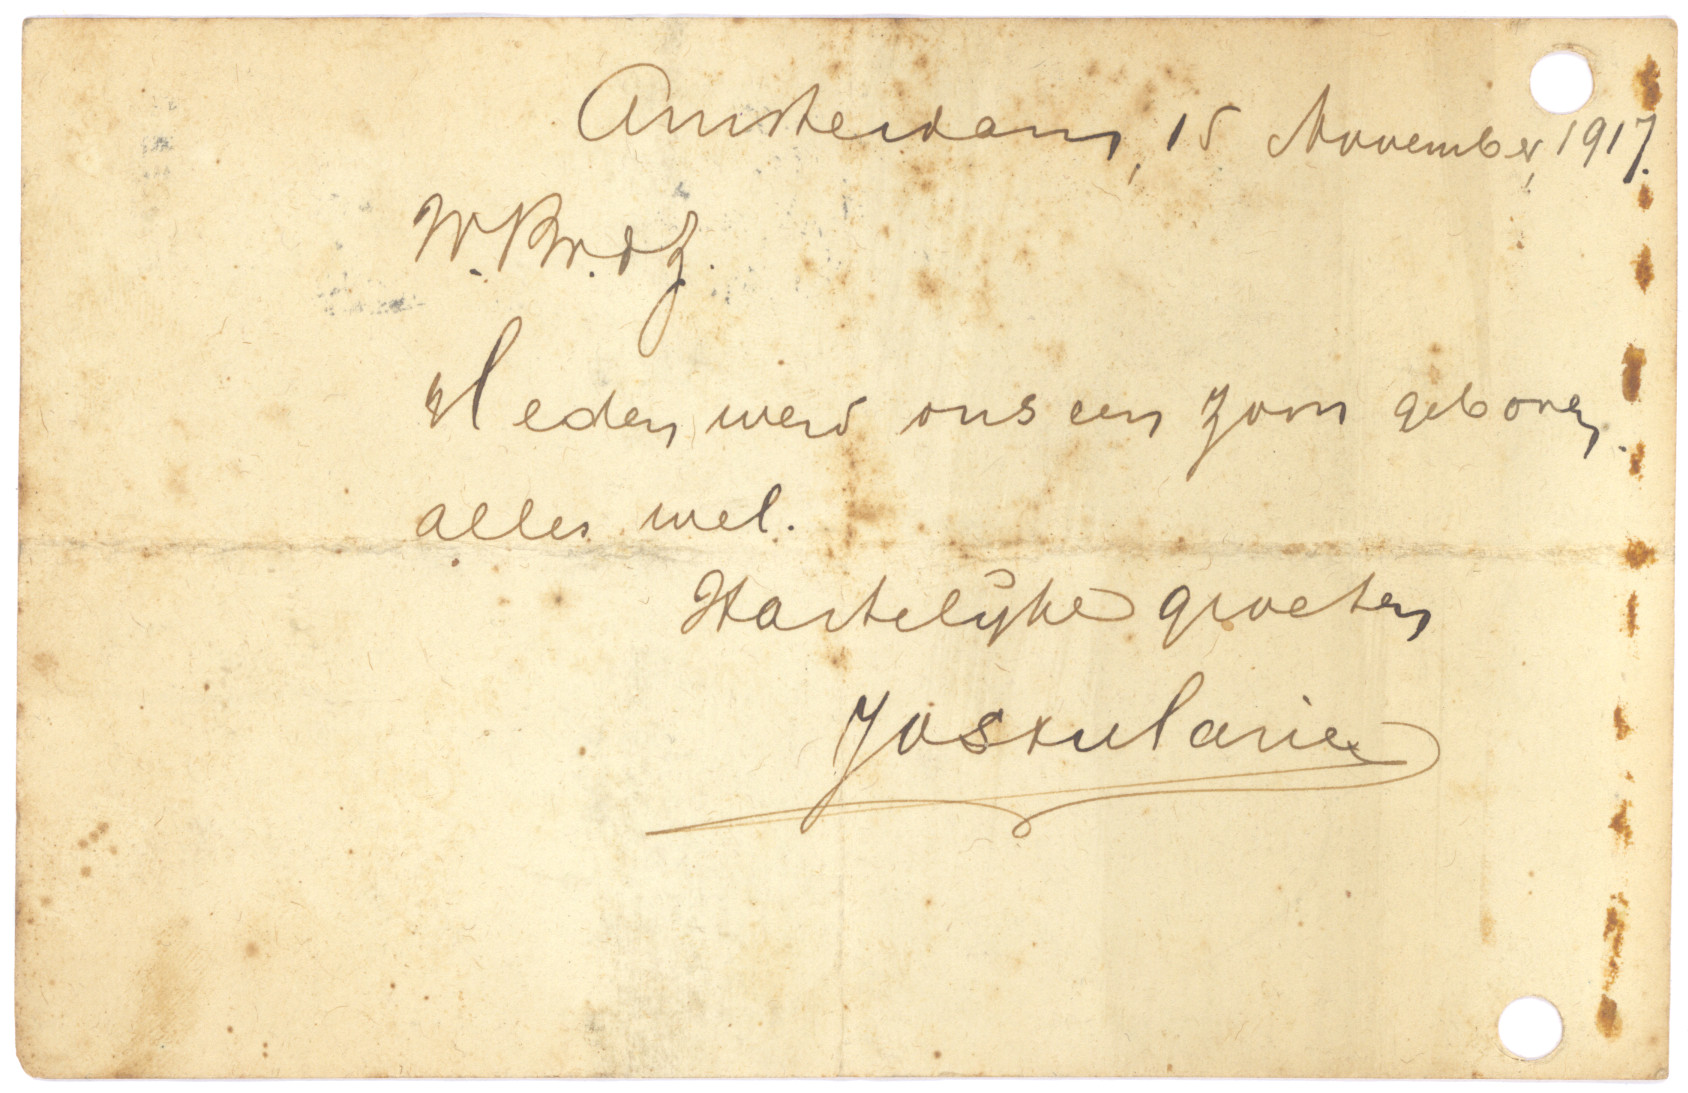 Amsterdam, 15 November, 1917.
W. Br. & Z.
Heden werd ons een zoon geboren.
alles wel.
Hartelijke groeten